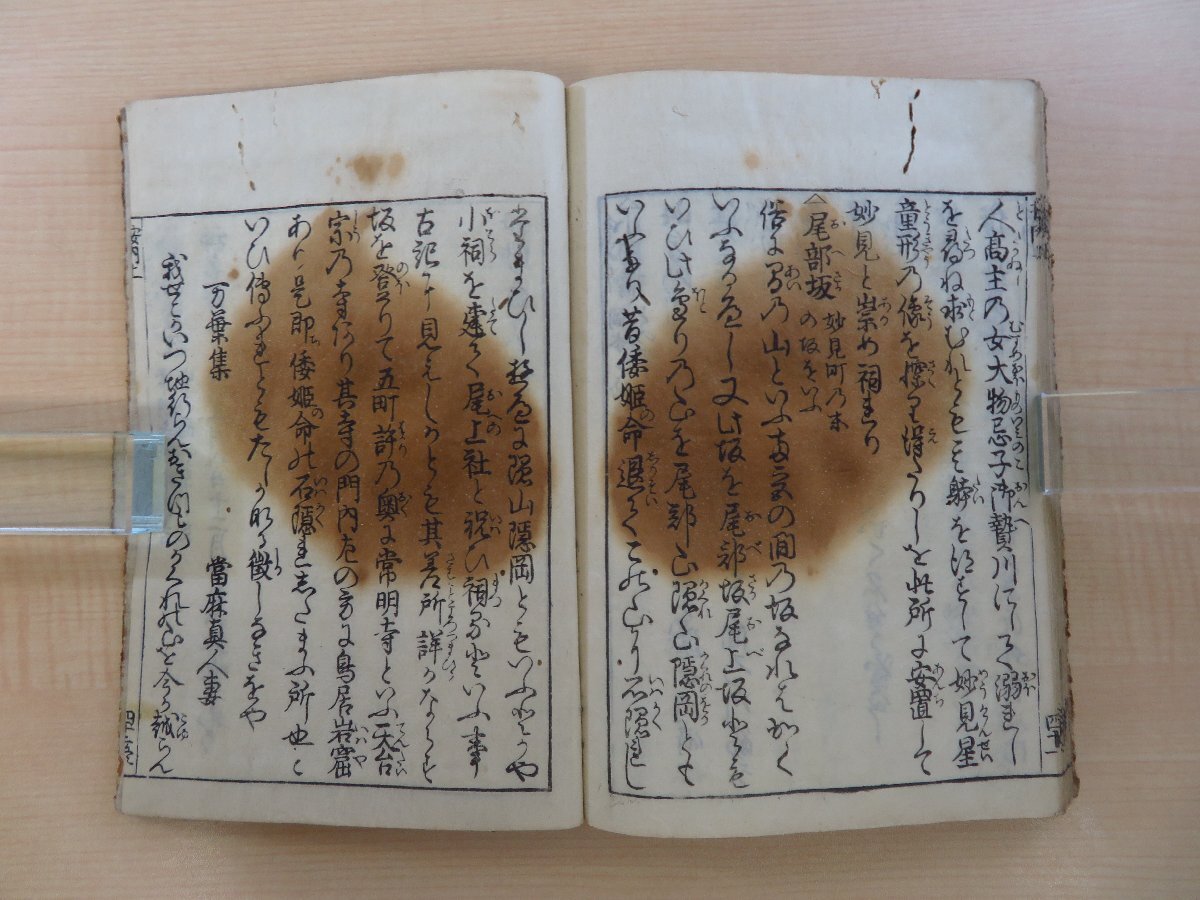 人高主の女大物忌子御贄川にして溺れし
を尋ね求むれども其躰を得ずして妙見星
童形の像を探り得たりしを此所に安置して
妙見と崇め祠れり
尾部坂 妙見町の末の坂をいふ
俗に間の山といふ両宮の間の坂なればかく
いふなるべし又此坂を尾部坂尾上坂とも
いひ此辺りの山を尾部山隠山隠岡とも
いふ昔倭姫命退てこの山に石隠れ
隠山隠岡ともいふとかや
小祠を建て尾上社と祝ひ祠るといふ事
古記に見えしかども其若所詳かならず
坂を登りて五町許の奥に常明寺といふ天台
宗の寺あり其寺の門内左の方に鳥居岩窟
あり是即倭姫命の石隠れましたまふ所也と
いひ傳ふれどもたしかなる徴しなきをや
万葉集
當麻真人妻
我せこはいつ地行らんおきつものかくれの山を今か越らん